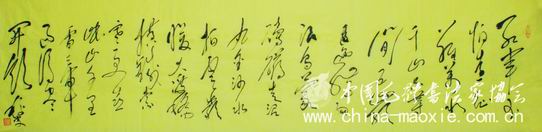 红军不
怕远征
难万水
千山只等
闲五岭
逶迤腾细
浪乌蒙
磅礴走泥
丸金沙水
拍云崖
暖大渡桥
横铁索
寒更喜
岷山千里
雪三军
过后尽
开颜
中国毛体书法家协会
www.china-maoxie.com.cn